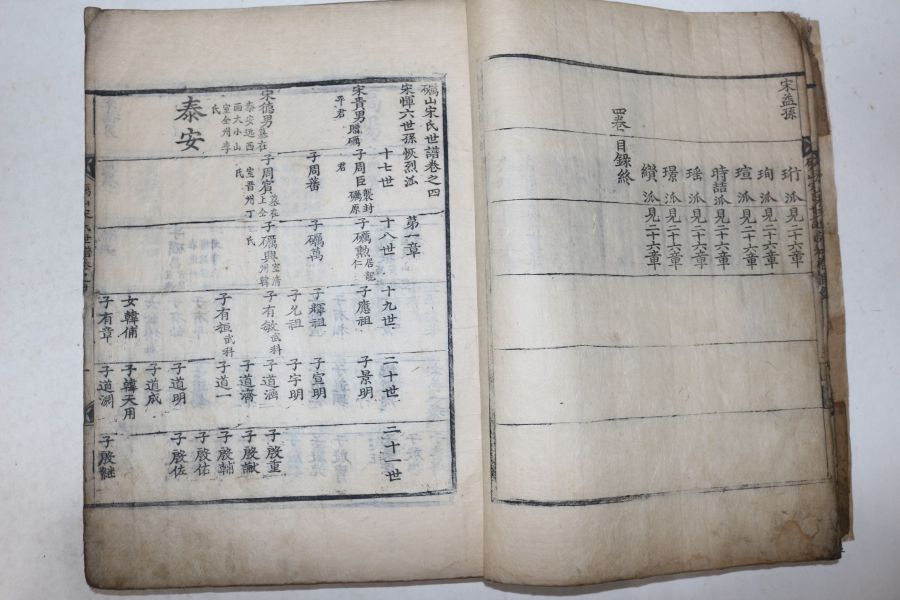 宋益孫
珩 派見二十六章
珣 派見二十六章
瑄 派見二十六章
時諳 派見二十六章
瑤 派見二十六章
璟 派見二十六章
纘 派見二十六章
四卷 目錄終
礪山宋氏世譜卷之四
宋惲六世孫恢烈派 第一章
十七世 十八世 十九世 二十世 二十一世
宋貴男 贈礪平君 子周臣 襲封礪原君 子礪勲 居龍仁 子應祖 子景明
子周蕃 子礪萬 子輝祖 子宣明
子允祖 子字明
宋德男 墓在泰安远西面大小山 室全州李氏 子周賓 墓在上仝 室晋州丁氏 子礪興 室清州韓氏 子有敏 武科 子道涵 子殷重
子道濟 子殷諴
子有桓 武科 子道一 子殷輔
子殷佑
泰安
子道明 子殷佐
子道成
女韓俌 子韓天用
子有章 子道淵 子殷繼